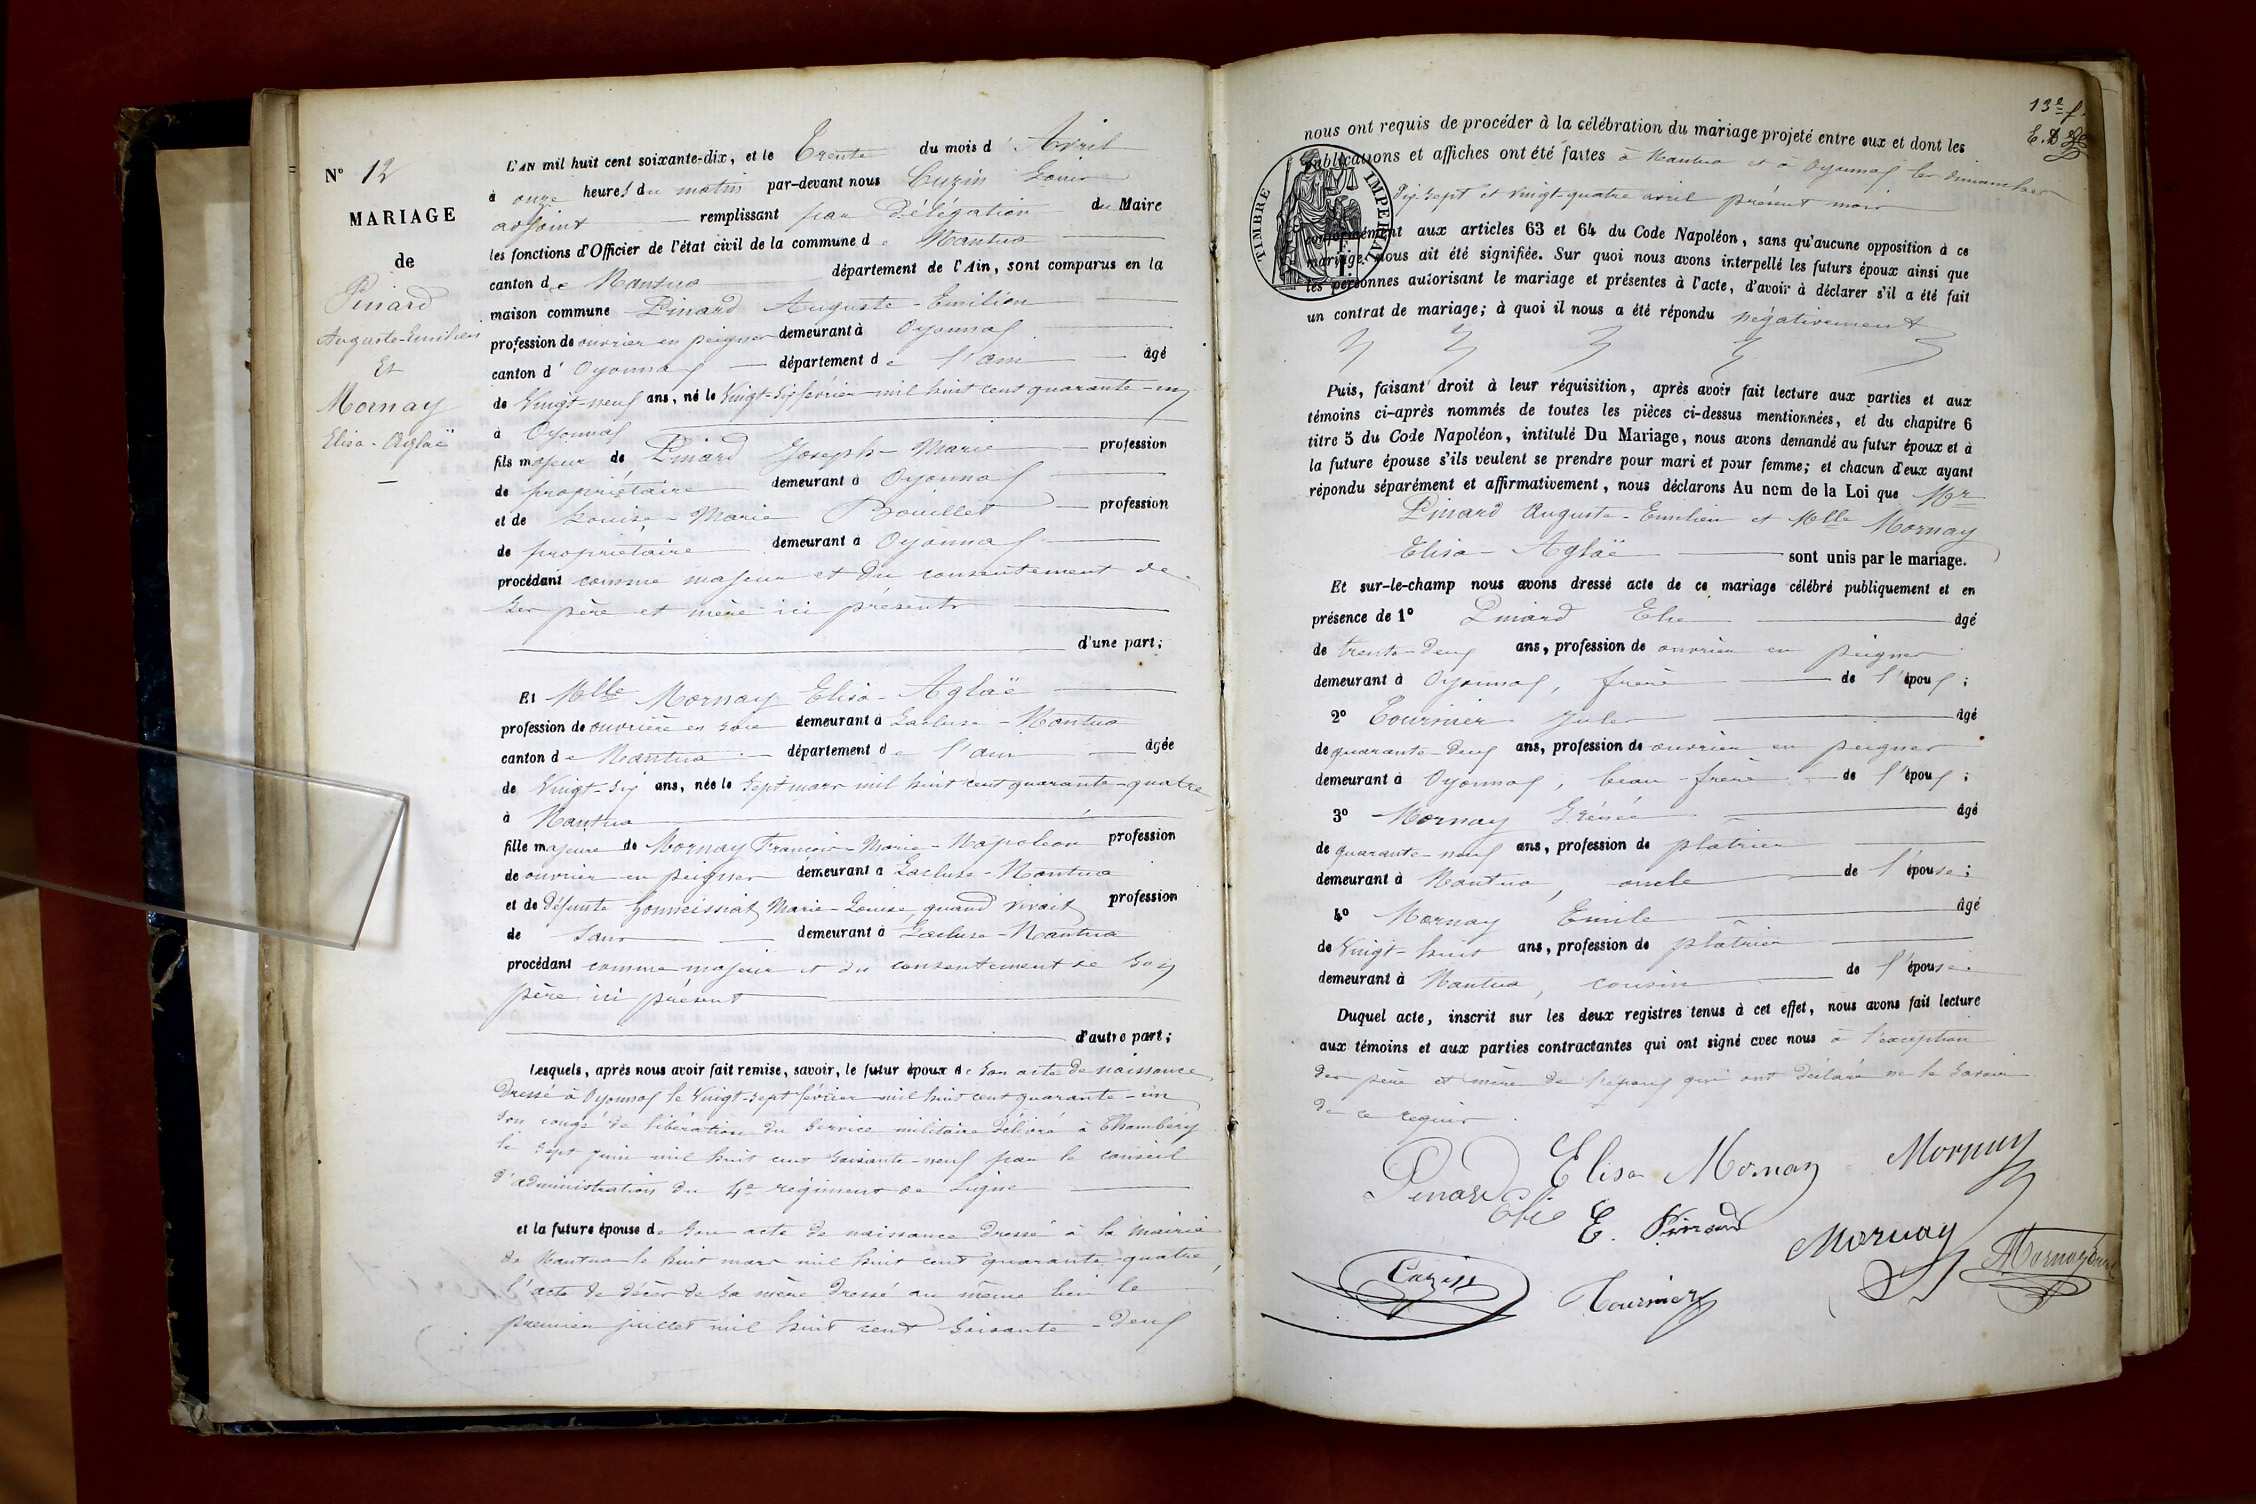 N° 12
MARIAGE
de
Pinard
Auguste-Emilien
Et
Mornay
Elisa-Aglaë
L'AN mil huit cent soixante-dix, et le Trente du mois d'Avril
à onze heures du matin par-devant nous Cuzin Louis
adjoint remplissant par Délégation du Maire
les fonctions d'Officier de l'état civil de la commune de Nantua
canton de Nantua département de l'Ain, sont comparus en la
maison commune Pinard Auguste-Emilien
profession de ouvrier en peignes demeurant à Oyonnax
canton d'Oyonnax département de l'ain âgé
de Vingt-neuf ans, né le Vingt-six février mil huit cent quarante-un
à Oyonnax
fils majeur de Pinard Joseph-Marie profession
de propriétaire demeurant à Oyonnax
et de Louise-Marie Bouillet profession
de propriétaire demeurant à Oyonnax
procédant comme majeur et du consentement de
ses père et mère ici présents
d'une part;
Et Mlle Mornay Elisa-Aglaë
profession de ouvrière en soie demeurant à Lacluse-Nantua
canton de Nantua département de l'ain âgée
de Vingt-six ans, née le Sept mars mil huit cent quarante-quatre
à Nantua
fille majeure de Mornay François-Marie-Napoléon profession
de ouvrier en peignes demeurant à Lacluse-Nantua
et de défunte Gonneissiat Marie-Louise, quand vivait profession
de sans demeurant à Lacluse-Nantua
procédant comme majeur et du consentement de son
père ici présent
d'autre part;
Lesquels, après nous avoir fait remise, savoir, le futur époux de son acte de naissance
Dressé à Oyonnax le Vingt-sept février mil huit cent quarante-un
son congé de libération du service militaire délivré à Chambéry
le sept juin mil huit cent soixante-neuf par le conseil
d'administration du 4e régiment de Ligne
et la future épouse de son acte de naissance dressé à la Mairie
de Nantua le huit mars mil huit cent quarante-quatre,
l'acte de décès de sa mère dressé au même lieu le
premier juillet mil huit cent soixante-deux
13e f.
E. D
nous ont requis de procéder à la célébration du mariage projeté entre eux et dont les
publications et affiches ont été faites à Nantua et à Oyonnax les dimanches
Dix-sept et vingt-quatre avril présent mois
TIMBRE IMPERIAL
conformément aux articles 63 et 64 du Code Napoléon, sans qu'aucune opposition à ce
mariage nous ait été signifiée. Sur quoi nous avons interpellé les futurs époux ainsi que
les personnes autorisant le mariage et présentes à l'acte, d'avoir à déclarer s'il a été fait
un contrat de mariage; à quoi il nous a été répondu négativement
Puis, faisant droit à leur réquisition, après avoir fait lecture aux parties et aux
témoins ci-après nommés de toutes les pièces ci-dessus mentionnées, et du chapitre 6
titre 5 du Code Napoléon, intitulé Du Mariage, nous avons demandé au futur époux et à
la future épouse s'ils veulent se prendre pour mari et pour femme; et chacun d'eux ayant
répondu séparément et affirmativement, nous déclarons Au nom de la Loi que Mr
Pinard Auguste-Emilien et Mlle Mornay
Elisa-Aglaë sont unis par le mariage.
Et sur-le-champ nous avons dressé acte de ce mariage célébré publiquement et en
présence de 1° Pinard Elie âgé
de trente-deux ans, profession de ouvrier en peignes
demeurant à Oyonnax, frère de l'époux;
2° Tournier Jules âgé
de quarante-deux ans, profession de ouvrier en peignes
demeurant à Oyonnax, beau-frère de l'époux;
3° Mornay Irénée âgé
de quarante-neuf ans, profession de platrier
demeurant à Nantua, oncle de l'épouse;
4° Mornay Emile âgé
de Vingt-huit ans, profession de platrier
demeurant à Nantua, cousin de l'épouse.
Duquel acte, inscrit sur les deux registres tenus à cet effet, nous avons fait lecture
aux témoins et aux parties contractantes qui ont signé avec nous à l'exception
des père et mère de l'époux qui ont déclaré ne le savoir
de ce requis.
Pinard Elie Elisa Mornay Mornay
E. Pinard Mornay
Cuzin Tournier